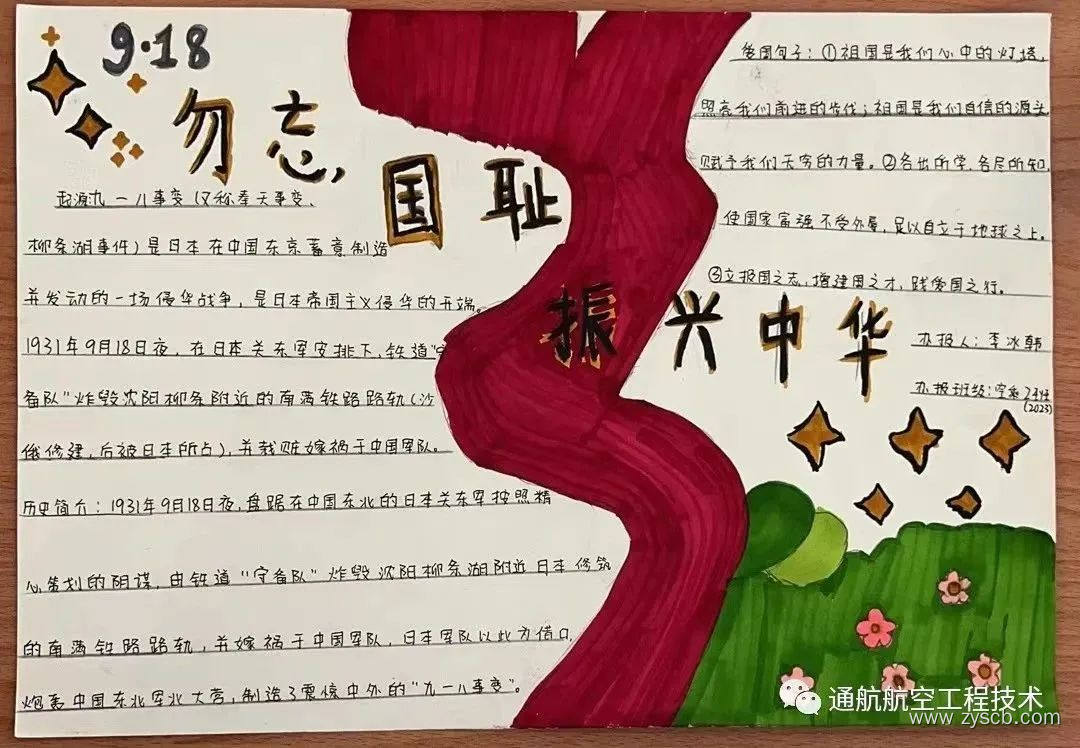 9·18
勿忘,国耻
振兴中华
起源九一八事变(又称奉天事变、
柳条湖事件)是日本在中国东京蓄意制造
并发动的一场侵华战争,是日本帝国主义侵华的开端。
1931年9月18日夜,在日本关东军安排下,铁道"守
备队"炸毁沈阳柳条附近的南满铁路路轨(沙
俄修建,后被日本所占),并栽赃嫁祸于中国军队。
历史简介:1931年9月18日夜,盘踞在中国东北的日本关东军按照精
心策划的阴谋,由铁道"守备队"炸毁沈阳柳条湖附近日本修筑
的南满铁路路轨,并嫁祸于中国军队,日军队以此为借口,
炮轰中国东北军北大营,制造了震惊中外的"九一八事变"。
爱国句子:①祖国是我们心中的灯塔,
照亮我们前进的步伐;祖国是我们自信的源头
赋予我们无穷的力量。②各出所学,各尽所知,
使国家富强不受外辱,足以自立于地球之上。
③立报国之志,增建国之才,践爱国之行。
办报人:李冰韩
办报班级:
(2023)
通航航空工程技术
www.zyscb.com